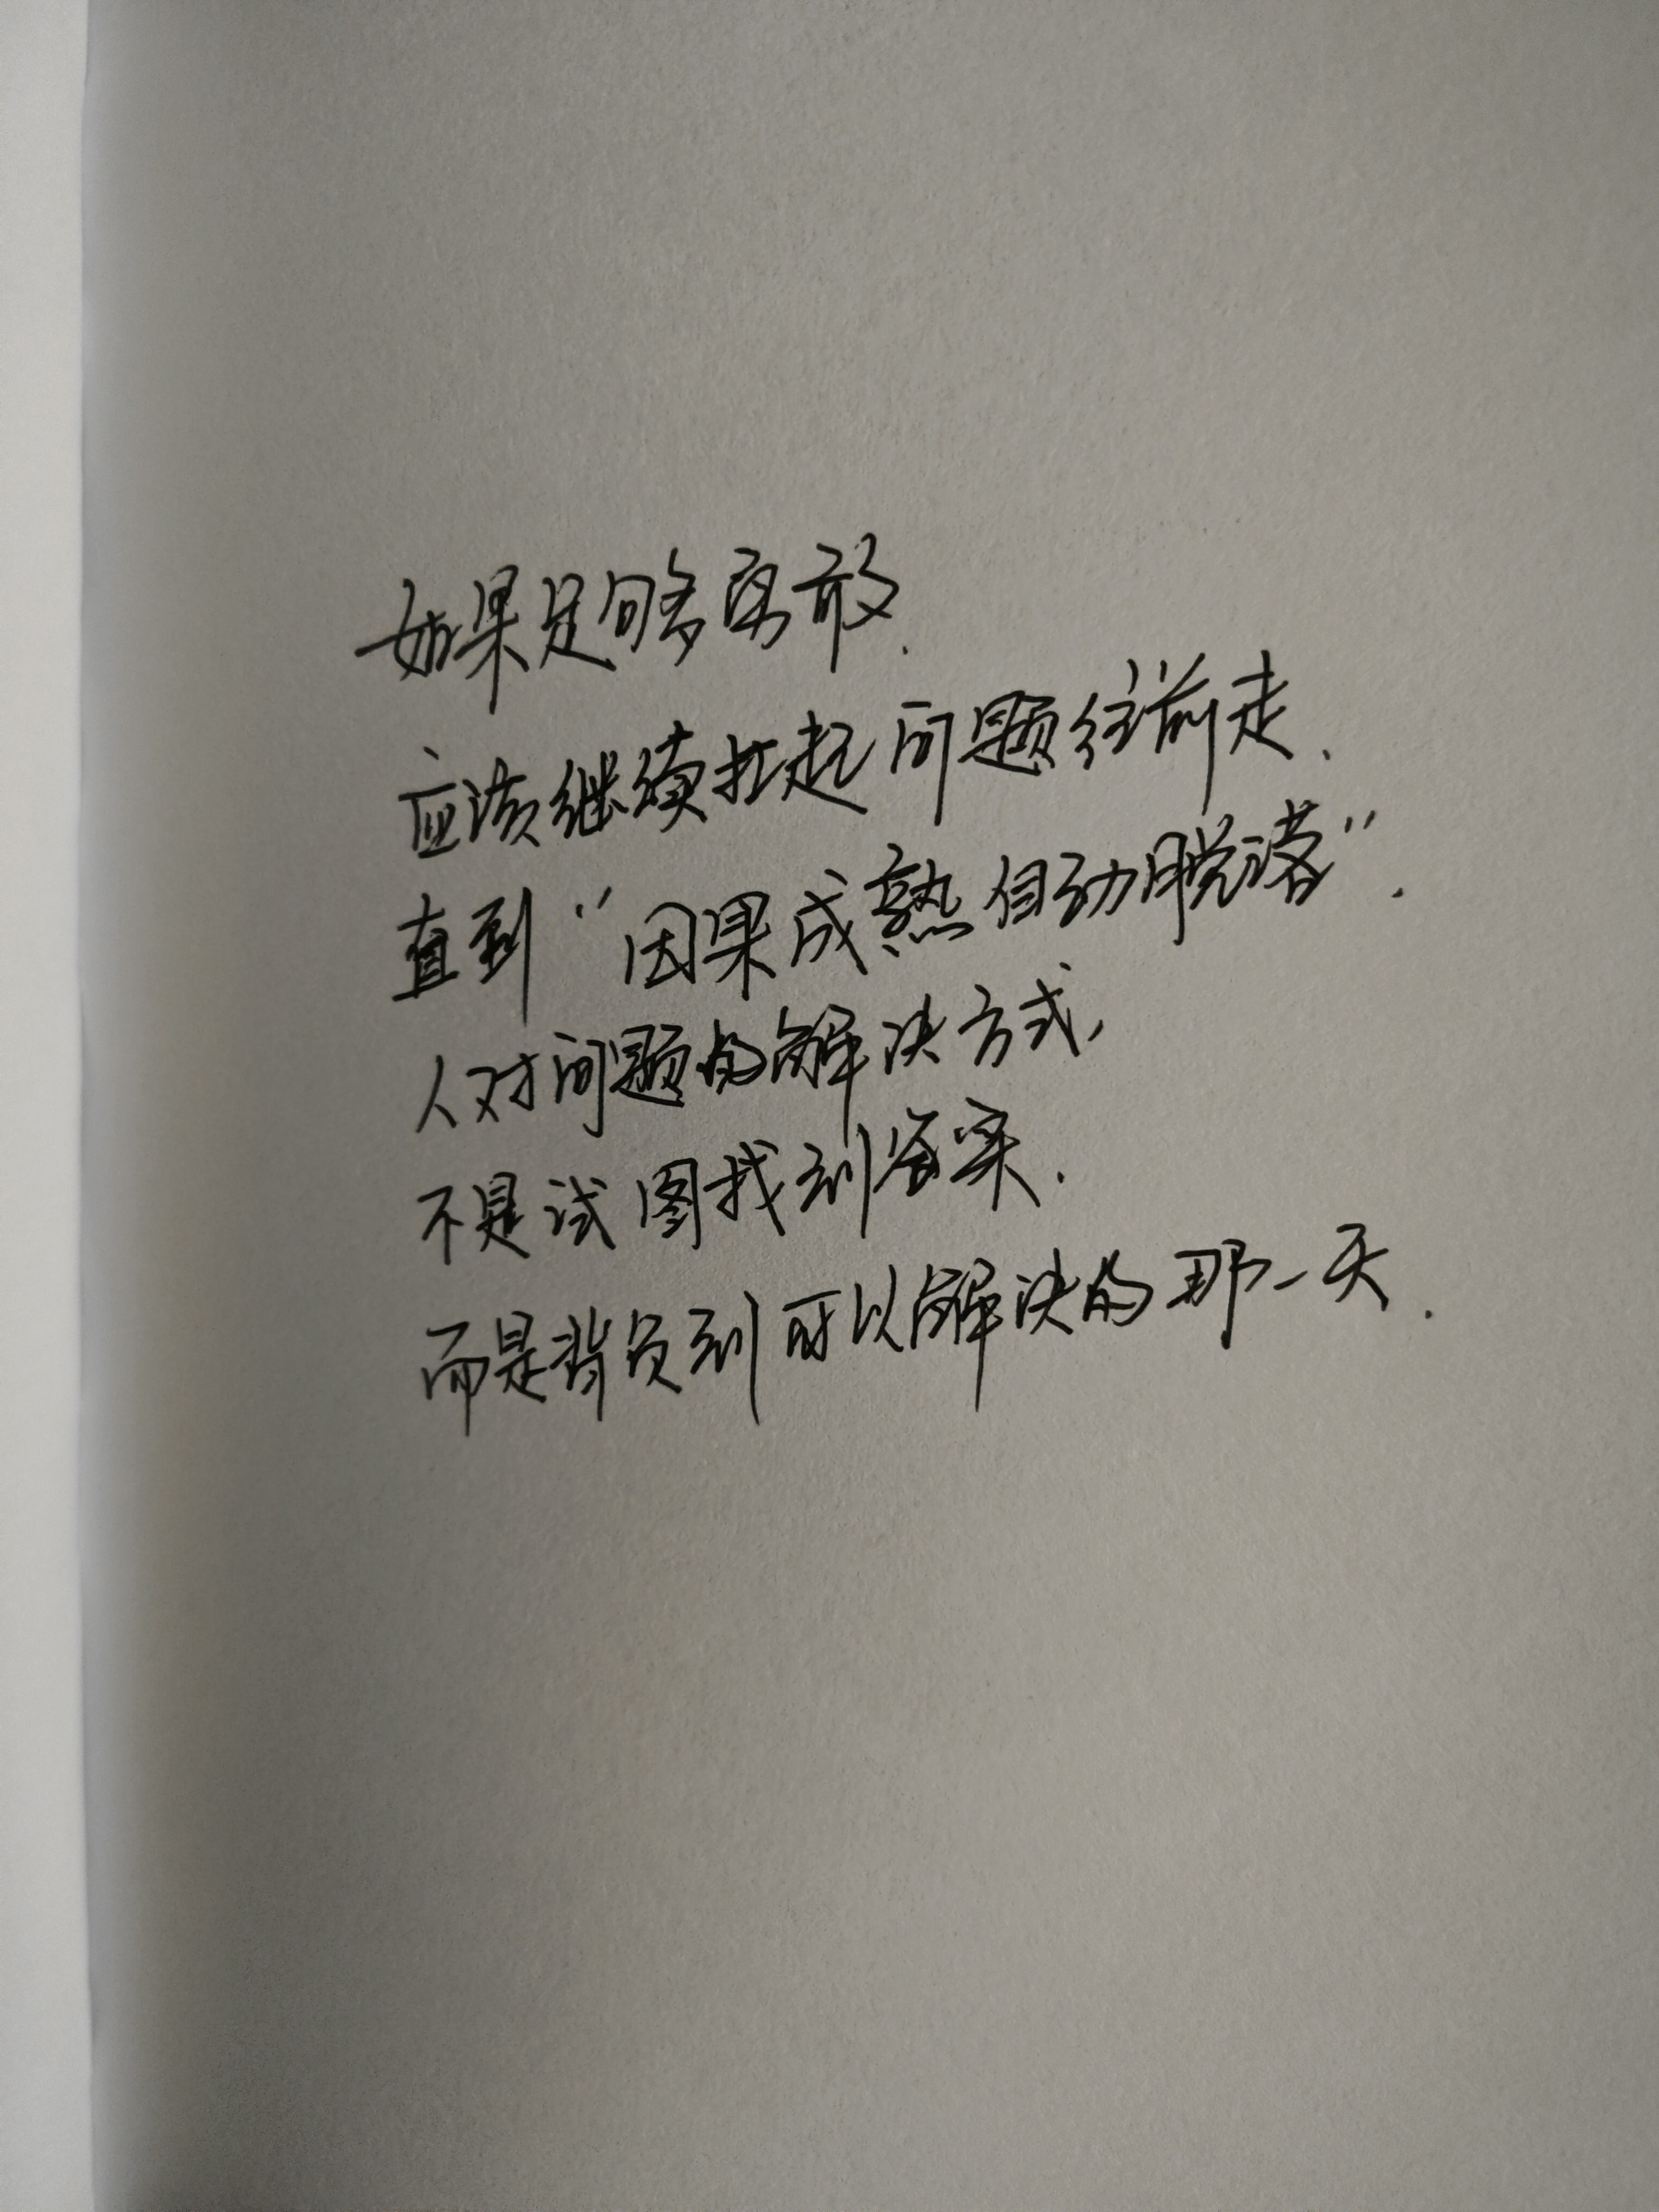 如果足够勇敢.
应该继续扛起问题往前走.
直到“因果成熟自动脱落”.
人对问题的解决方式,
不是试图找到答案.
而是背负到可以解决的那一天.